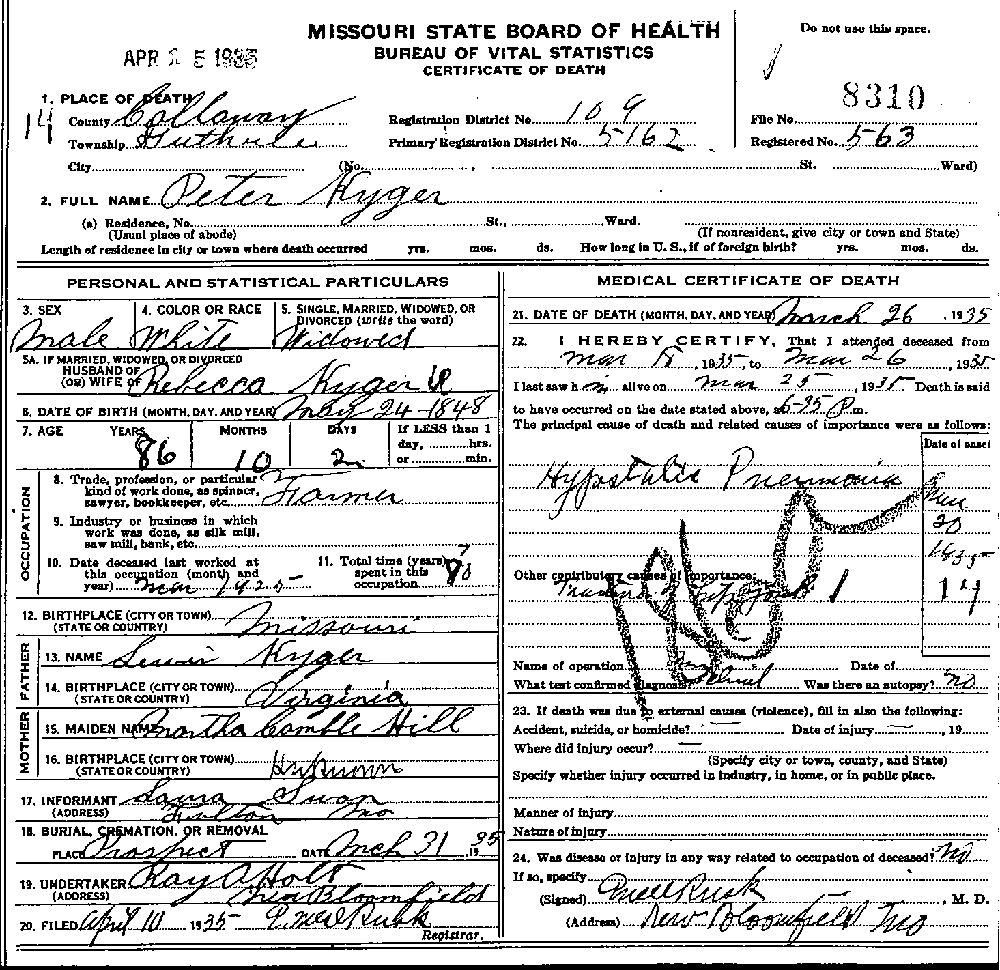 MISSOURI STATE BOARD OF HEALTH
BUREAU OF VITAL STATISTICS
CERTIFICATE OF DEATH
Do not use this space.
8310
1. PLACE OF DEATH
14
County Callaway Registration District No. 109 File No.
Township Guthrie Primary Registration District No. 5162 Registered No. 563
City (No. St. Ward)
2. FULL NAME Peter Kyger
(a) Residence, No. St., Ward.
(Usual place of abode) (If nonresident, give city or town and State)
Length of residence in city or town where death occurred yrs. mos. ds. How long in U. S., if of foreign birth? yrs. mos. ds.
PERSONAL AND STATISTICAL PARTICULARS
3. SEX 4. COLOR OR RACE 5. SINGLE, MARRIED, WIDOWED, OR
DIVORCED (write the word)
Male White Widowed
5A. IF MARRIED, WIDOWED, OR DIVORCED
HUSBAND OF
(OR) WIFE OF Rebecca Kyger
6. DATE OF BIRTH (MONTH, DAY, AND YEAR) May 24 1848
7. AGE YEARS MONTHS DAYS If LESS than 1
day, hrs.
or min.
86 10 2
OCCUPATION
8. Trade, profession, or particular
kind of work done, as spinner,
sawyer, bookkeeper, etc. Farmer
9. Industry or business in which
work was done, as silk mill,
saw mill, bank, etc.
10. Date deceased last worked at
this occupation (month and
year) Mar 1925
11. Total time (years)
spent in this
occupation
12. BIRTHPLACE (CITY OR TOWN)
(STATE OR COUNTRY) Missouri
FATHER
13. NAME Kyger
14. BIRTHPLACE (CITY OR TOWN)
(STATE OR COUNTRY) Virginia
MOTHER
15. MAIDEN NAME Martha Camble Hill
16. BIRTHPLACE (CITY OR TOWN)
(STATE OR COUNTRY) Unknown
17. INFORMANT Laura Swan
(ADDRESS) Fulton Mo
18. BURIAL, CREMATION, OR REMOVAL
PLACE Prospect DATE Mch 31 1935
19. UNDERTAKER Ray O Holt
(ADDRESS) New Bloomfield
20. FILED April 10 1935
Registrar.
MEDICAL CERTIFICATE OF DEATH
21. DATE OF DEATH (MONTH, DAY, AND YEAR) March 26, 1935
22. I HEREBY CERTIFY, That I attended deceased from
Mar 18, 1935 to Mar 26, 1935
I last saw him alive on Mar 25, 1935 Death is said
to have occurred on the date stated above, at P.m.
The principal cause of death and related causes of importance were as follows:
Date of onset
Hypstatic Pneumonia
20
1935
Other contributory causes of importance:
14
Name of operation Date of
What test confirmed diagnosis? Was there an autopsy? no
23. If death was due to external causes (violence), fill in also the following:
Accident, suicide, or homicide? — Date of injury — , 19
Where did injury occur? —
(Specify city or town, county, and State)
Specify whether injury occurred in industry, in home, or in public place.
Manner of injury
Nature of injury
24. Was disease or injury in any way related to occupation of deceased? no
If so, specify
(Signed) , M. D.
(Address) New Bloomfield Mo